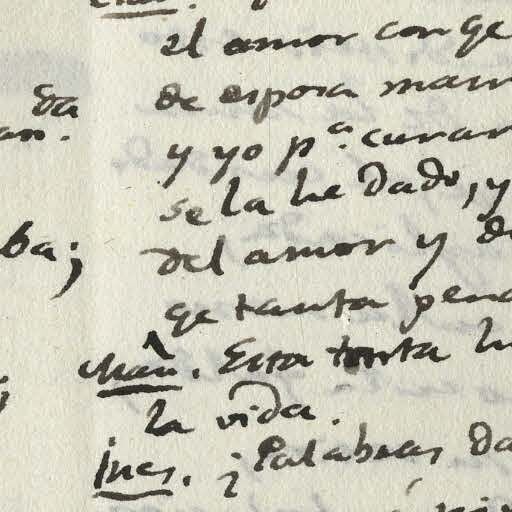 el amor con qe
da de esposa mari
an. y yo pª. curar
se la he dado, y
ba; del amor y de
qe tanta pena
Man. Esta tonta h
la vida.
Ines. ¡Palabras da